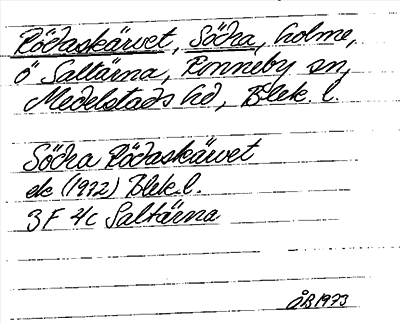 Rödaskärvet, Södra, holme,
Ö Saltärna, Ronneby sn,
Medelstads hd, Blek. l.
Södra Rödaskärvet
ek (1972) Blek. l.
3F 4c Saltärna
ÅB 1973